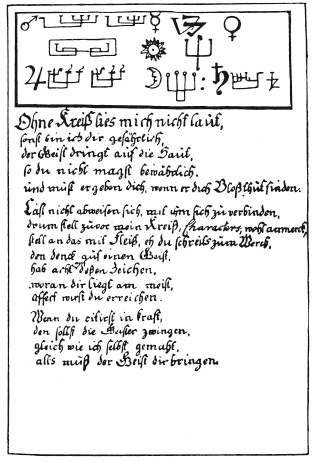 Ohne Kreiß lies mich nicht laut,
sonst bin ich dir gefährlich,
der Geist dringt auf die Haut,
so du nicht magst bewährlich.
und muß ergeben dich, wenn er dich Bloß thut finden.
Laß nicht abweisen sich, mit ihm sich zu verbinden,
drum stell zuvor mein Kreiß, Characters, wohl anmerck,
stell an das mit Fleiß, eh du schreitst zum Werck,
den denck auf einen Geist,
hab acht deßen Zeichen,
woran dir liegt am meist,
affect wirst du erreichen.
Wenn du citirst in kraft,
den sollst die Geister zwingen,
gleich wie ich selbst gemuht,
alls muß der Geist dir bringen.